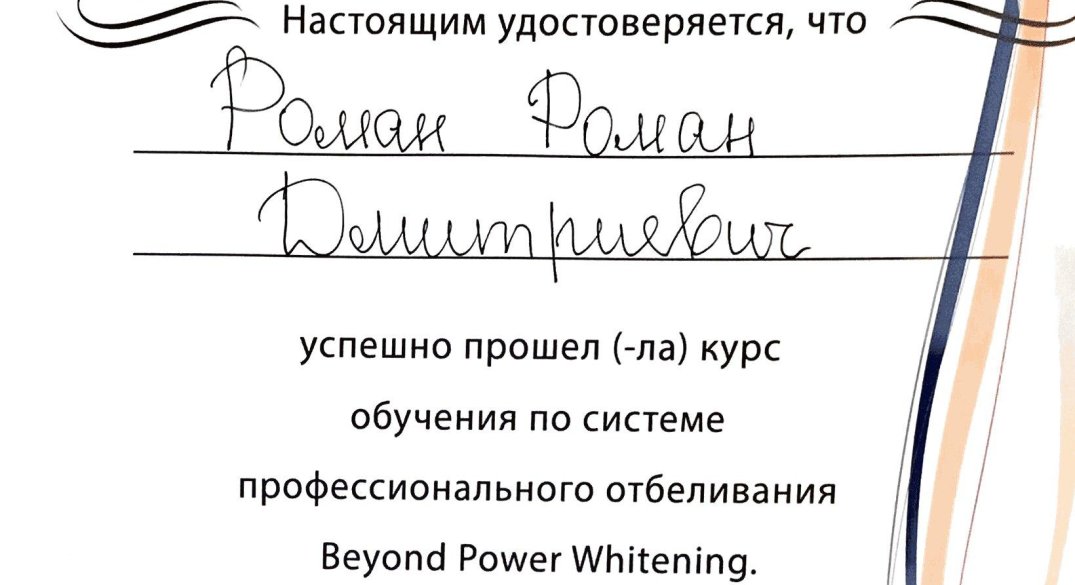 Настоящим удостоверяется, что
Роман Роман
Дмитриевич
успешно прошел (-ла) курс
обучения по системе
профессионального отбеливания
Beyond Power Whitening.